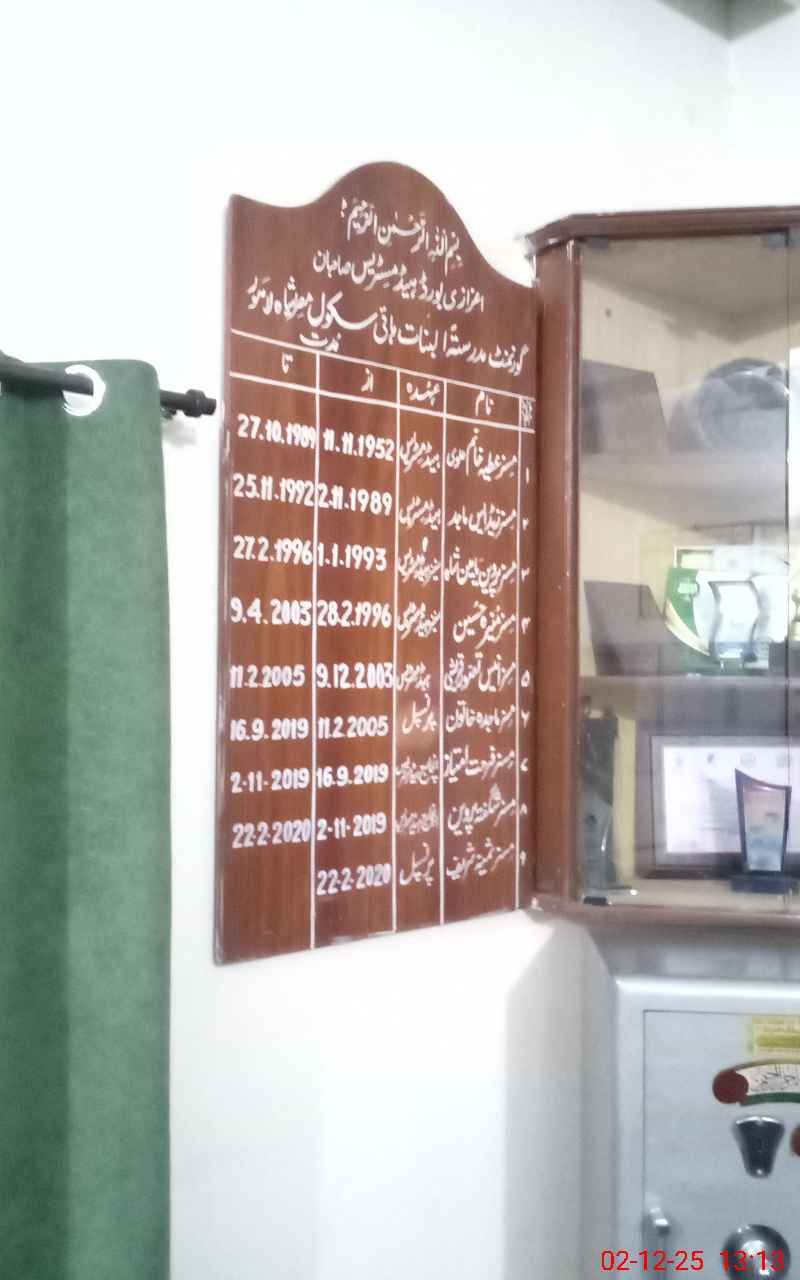 بسم اللہ الرحمٰن الرحیم
اعزازی بورڈ ہیڈ مسٹریس صاحبان
گورنمنٹ مدرستہ البنات ہائی سکول لاہور
مدت
نام عہدہ از تا
۱ مسز عطیہ خانم علوی ہیڈ مسٹریس 11.11.1952 27.10.1989
۲ مسز زیڈ ایس ماجد ہیڈ مسٹریس 2.11.1989 25.11.1992
۳ مسز پروین یامین شاہ سینئر ہیڈ مسٹریس 1.1.1993 27.2.1996
۴ مسز منیرہ حسین سینئر ہیڈ مسٹریس 28.2.1996 9.4.2003
۵ مسز ہیڈ مسٹریس 9.12.2003 11.2.2005
۶ مسز ماجدہ خاتون پرنسپل 11.2.2005 16.9.2019
۷ مسز فرحت امتیاز 16.9.2019 2-11-2019
۸ مسز شگفتہ پروین 2-11-2019 22-2-2020
۹ مسز ثمینہ شریف پرنسپل 22-2-2020
02-12-25 13:13